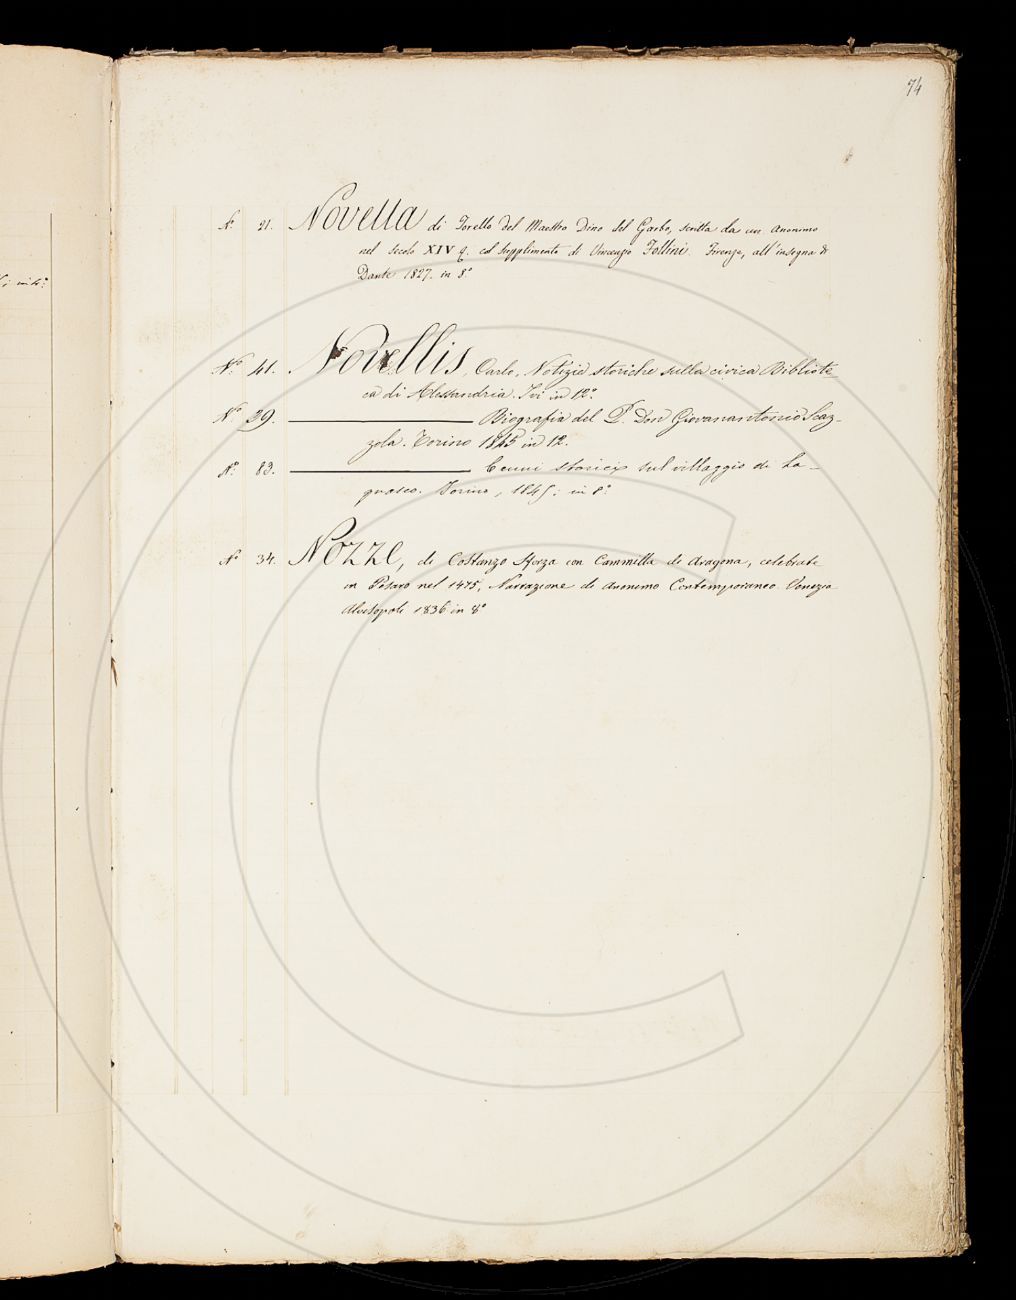 74
N.° 21. Novella di Torello del Maestro Dino del Garbo, scritta da un Anonimo
nel secolo XIV q. col supplimento di Vincenzio Follini. Firenze, all'insegna di
Dante 1827. in 8.°
N.° 41. Novellis, Carlo, Notizie storiche sulla civica Bibliote-
ca di Alessandria. Ivi in 12.°
N.° 39. ——— Biografia del P. Don Giovanantonio Scaz-
zola. Torino 1845 in 12.
N.° 83. ——— Cenni storici sul villaggio di La-
quosco. Torino, 1845; in 8.°
N.° 34. Nozze, di Costanzo Sforza con Cammilla di Aragona, celebrate
in Pesaro nel 1475, Narrazione di Anonimo Contemporaneo. Venezia
Alvisopoli 1836 in 8.°